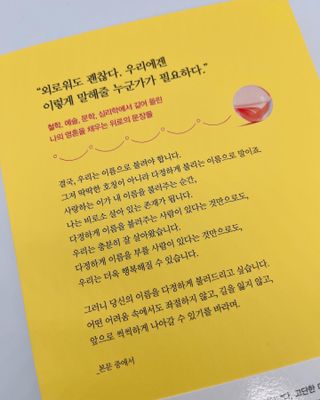 “외로워도 괜찮다. 우리에겐
이렇게 말해줄 누군가가 필요하다.”
철학, 예술, 문학, 심리학에서 길어 올린
나의 영혼을 채우는 위로의 문장들
결국, 우리는 이름으로 불려야 합니다.
그저 딱딱한 호칭이 아니라 다정하게 불리는 이름으로 말이죠.
사랑하는 이가 내 이름을 불러주는 순간,
나는 비로소 살아 있는 존재가 됩니다.
다정하게 이름을 불러주는 사람이 있다는 것만으로도,
우리는 충분히 잘 살아왔습니다.
다정하게 이름을 부를 사람이 있다는 것만으로도,
우리는 더욱 행복해질 수 있습니다.
그러니 당신의 이름을 다정하게 불러드리고 싶습니다.
어떤 어려움 속에서도 좌절하지 않고, 길을 잃지 않고,
앞으로 씩씩하게 나아갈 수 있기를 바라며.
_본문 중에서
고단한